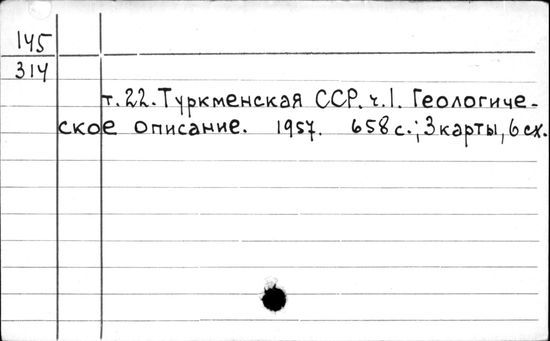 145
314
т. 22. Туркменская ССР. ч. 1. Геологиче-
ское описание. 1957. 658 с.; 3 карты, 6 сх.